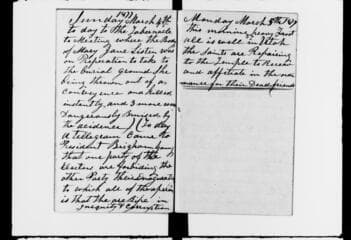 1877
Sunday March 4th
to day to the Tabernacle
to Meeting where the Body
of Mary Jane Sister was
in Preperation to take to
the burial ground She
being thrown out of a
conveyence and killed
instantly, and 3 more were
Dangerously bruised by
the accidence (To day
A tellegram Came to
President Brigham Young
that one party of the
Electors are
other Party
to which all of the opinion
is that the are Ripe in
Iniquity & Corruption
Monday March 5th 1877
this morning heavy frost
all is well in Utah
the Saints are Repairing
to the Temple to Receive
and officiate in the ordi
nance for their Dead friends